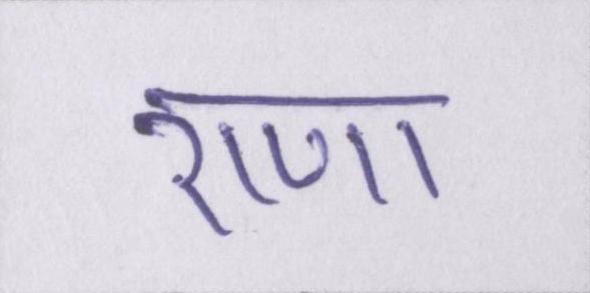 राणा